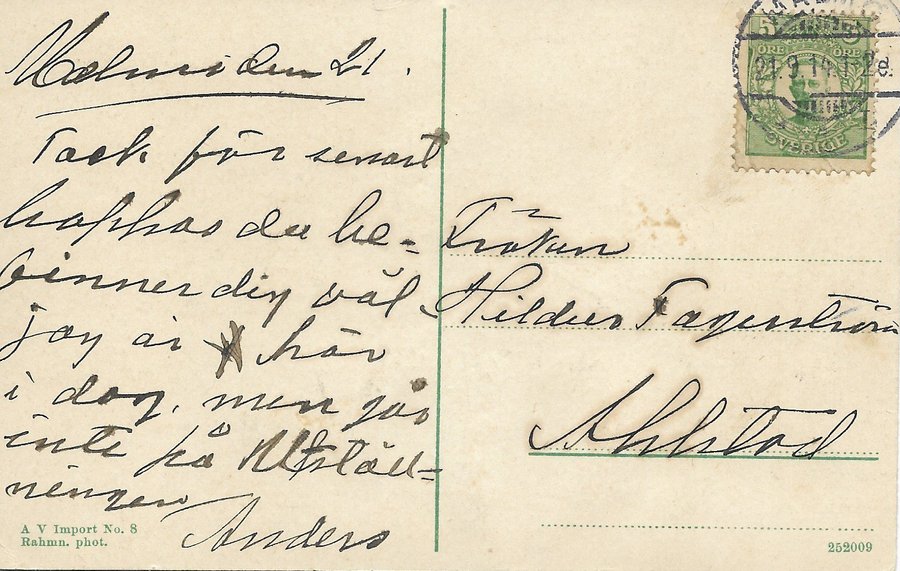 Malmö den 21.
Tack för senast
hoppas du be-
finner dig väl
jag är här
i dag, men går
inte på Utställ-
ningen
Anders
A V Import No. 8
Rahmn. phot.
5 5
ÖRE ÖRE
SVERIGE
21.9.14.1-2e.
Fröken
Fagerström
Ahlstad
252009